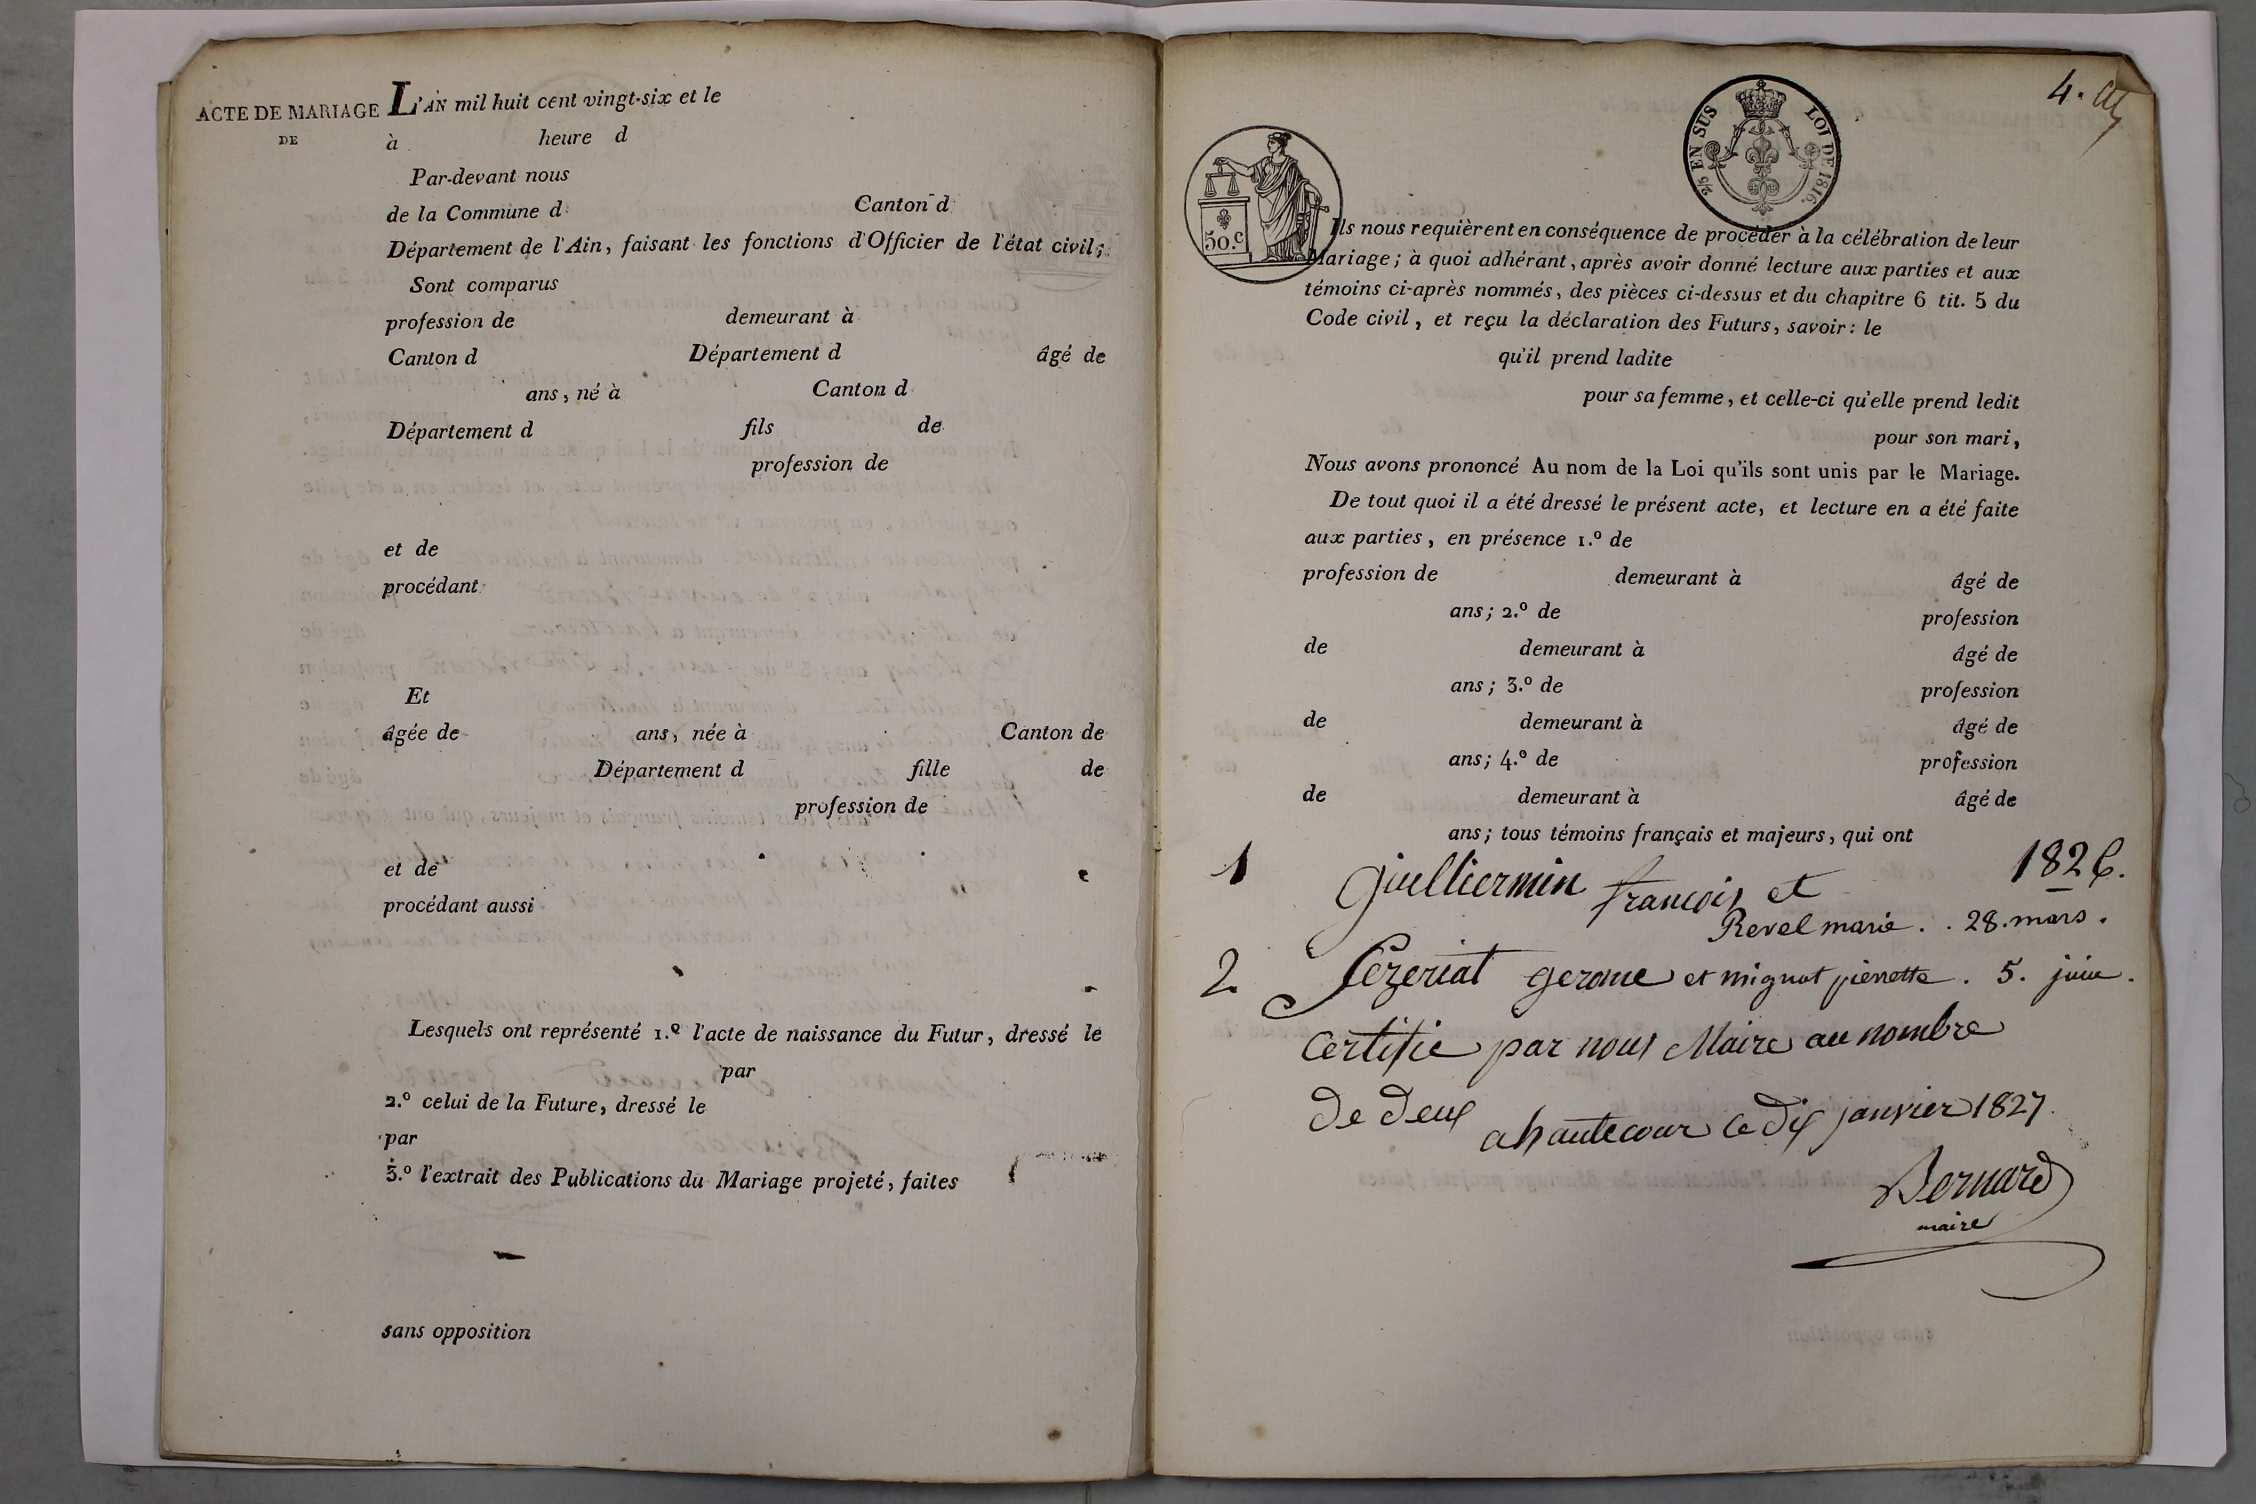 ACTE DE MARIAGE
DE
L'AN mil huit cent vingt-six et le
à heure d
Par-devant nous
de la Commune d Canton d
Département de l'Ain, faisant les fonctions d'Officier de l'état civil;
Sont comparus
profession de demeurant à
Canton d Département d âgé de
ans, né à Canton d
Département d fils de
profession de
et de
procédant
Et
âgée de ans, née à Canton de
Département d fille de
profession de
et de
procédant aussi
Lesquels ont représenté 1.º l'acte de naissance du Futur, dressé le
par
2.º celui de la Future, dressé le
par
3.º l'extrait des Publications du Mariage projeté, faites
sans opposition
4.
50.c
2/5 EN SUS LOI DE 1816.
Ils nous requièrent en conséquence de procéder à la célébration de leur
Mariage; à quoi adhérant, après avoir donné lecture aux parties et aux
témoins ci-après nommés, des pièces ci-dessus et du chapitre 6 tit. 5 du
Code civil, et reçu la déclaration des Futurs, savoir: le
qu'il prend ladite
pour sa femme, et celle-ci qu'elle prend ledit
pour son mari,
Nous avons prononcé Au nom de la Loi qu'ils sont unis par le Mariage.
De tout quoi il a été dressé le présent acte, et lecture en a été faite
aux parties, en présence 1.º de
profession de demeurant à âgé de
ans; 2.º de profession
de demeurant à âgé de
ans; 3.º de profession
de demeurant à âgé de
ans; 4.º de profession
de demeurant à âgé de
ans; tous témoins français et majeurs, qui ont
1826.
1 Guilliermin francois et
Revel marie . . 28. mars .
2 Cezeriat gerome et mignot pierrette . 5. juin .
Certifie par nous Maire au nombre
De Deux
a hautecour ce Dix janvier 1827.
Bernard
maire